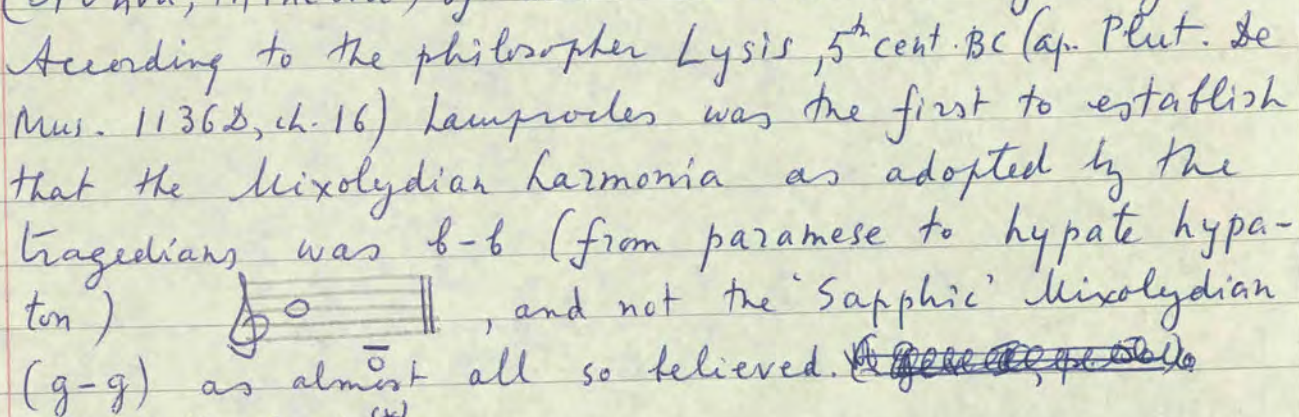 According to the philosopher Lysis, 5th cent. BC (ap. Plut. De
Mus. 1136D, ch. 16) Lamprocles was the first to establish
that the Mixolydian harmonia as adopted by the
tragedians was b-b (from paramese to hypate hypa-
ton) , and not the 'Sapphic' Mixolydian
(g-g) as almost all so believed.
(x)